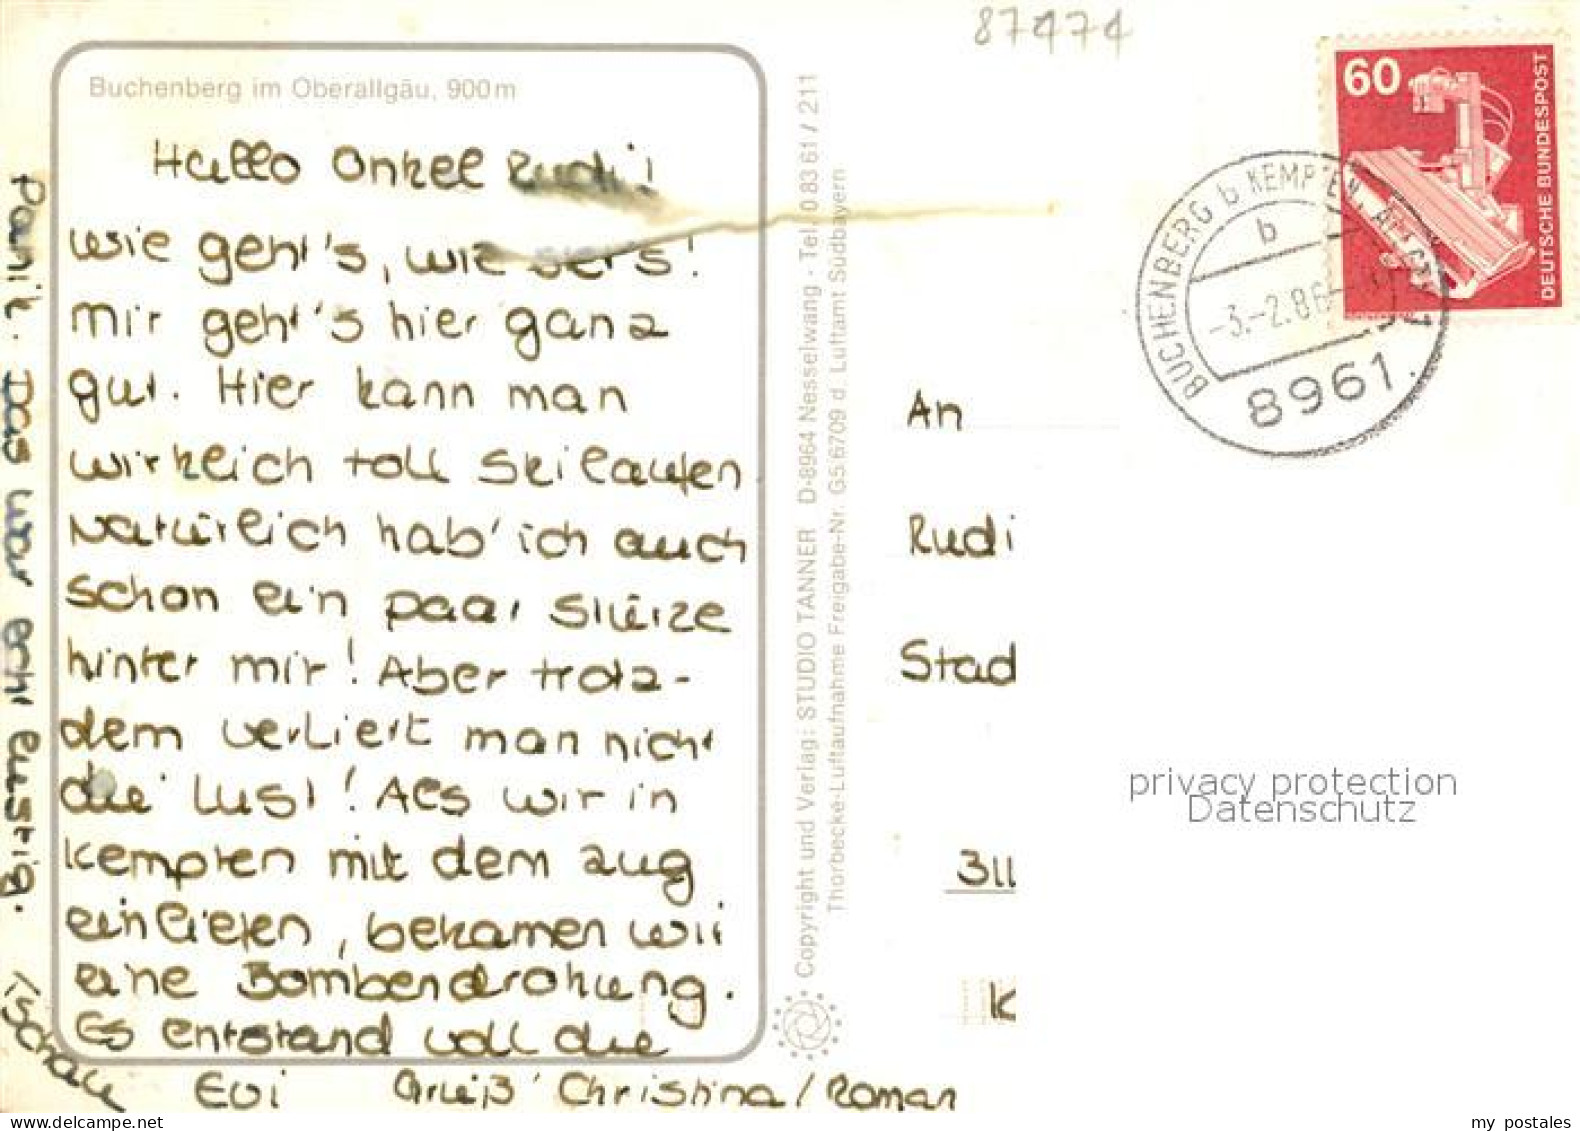 87474
Buchenberg im Oberallgäu, 900m
Hallo Onkel Rudi!
wie geht's, wie steht's!
Mir geht's hier ganz
gut. Hier kann man
wirklich toll Skilaufen
Natürlich hab' ich auch
schon ein paar Stürze
hinter mir! Aber trotz-
dem verliert man nicht
die Lust! Als wir in
Kempten mit dem Zug
einliefen, bekamen wir
eine Bombendrohung.
Es entstand voll die
Panik. Das war echt lustig.
Tschau
Evi Gruß Christina/Roman
Copyright und Verlag: STUDIO TANNER D-8964 Nesselwang · Tel. 0 83 61 / 211
Thorbecke-Luftaufnahme Freigabe-Nr. G5 6709 d. Luftamt Südbayern
60
DEUTSCHE BUNDESPOST
BUCHENBERG b KEMPTEN, ALLGÄU
b
-3.-2.86
8961
An
Rudi
Stad
311
K
privacy protection
Datenschutz
my postales